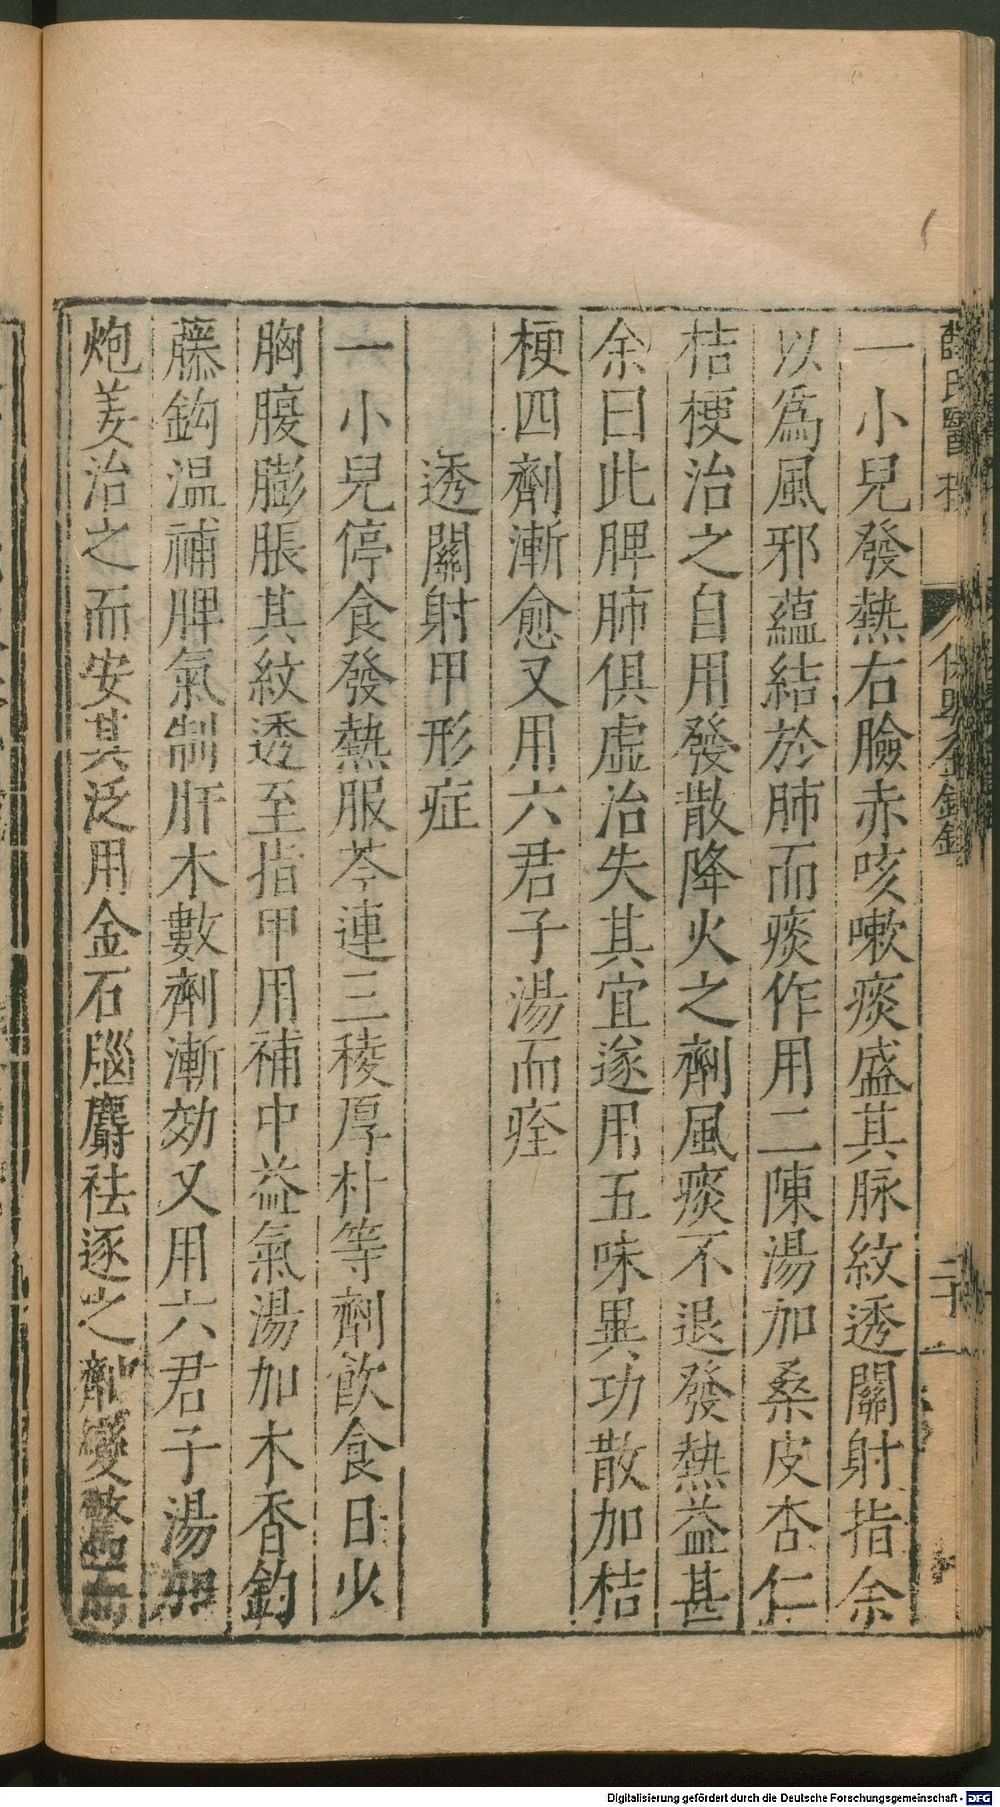 薛氏醫
一小兒發熱右臉赤咳嗽痰盛其脉紋透關射指余
以爲風邪蘊結於肺而痰作用二陳湯加桑皮杏仁
桔梗治之自用發散降火之劑風痰不退發熱益甚
余曰此脾肺俱虛治失其宜遂用五味異功散加桔
梗四劑漸愈又用六君子湯而痊
透關射甲形症
一小兒停食發熱服芩連三稜厚朴等劑飲食日少
胸腹膨脹其紋透至指甲用補中益氣湯加木香釣
藤鈎温補脾氣制肝木數劑漸効又用六君子湯加
炮姜治之而安其泛用金石腦麝祛逐之劑變驚而
Digitalisierung gefördert durch die Deutsche Forschungsgemeinschaft - DFG